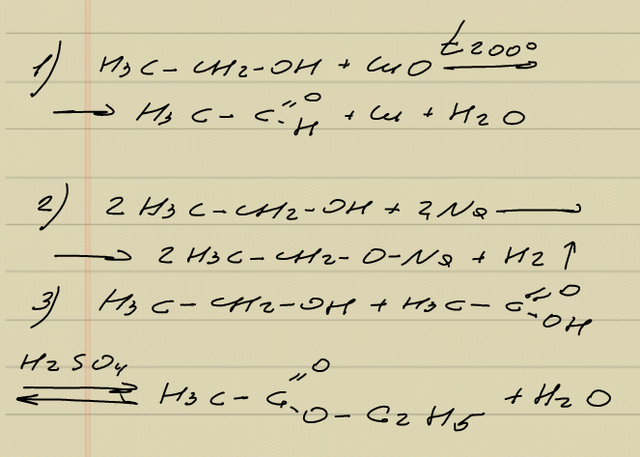 1) H3C - CH2 - OH + CuO t 200° →
→ H3C - C =O -H + Cu + H2O
2) 2H3C - CH2 - OH + 2Na →
→ 2H3C - CH2 - O - Na + H2 ↑
3) H3C - CH2 - OH + H3C - C =O -OH
H2SO4 ⇄ H3C - C =O -O - C2H5 + H2O